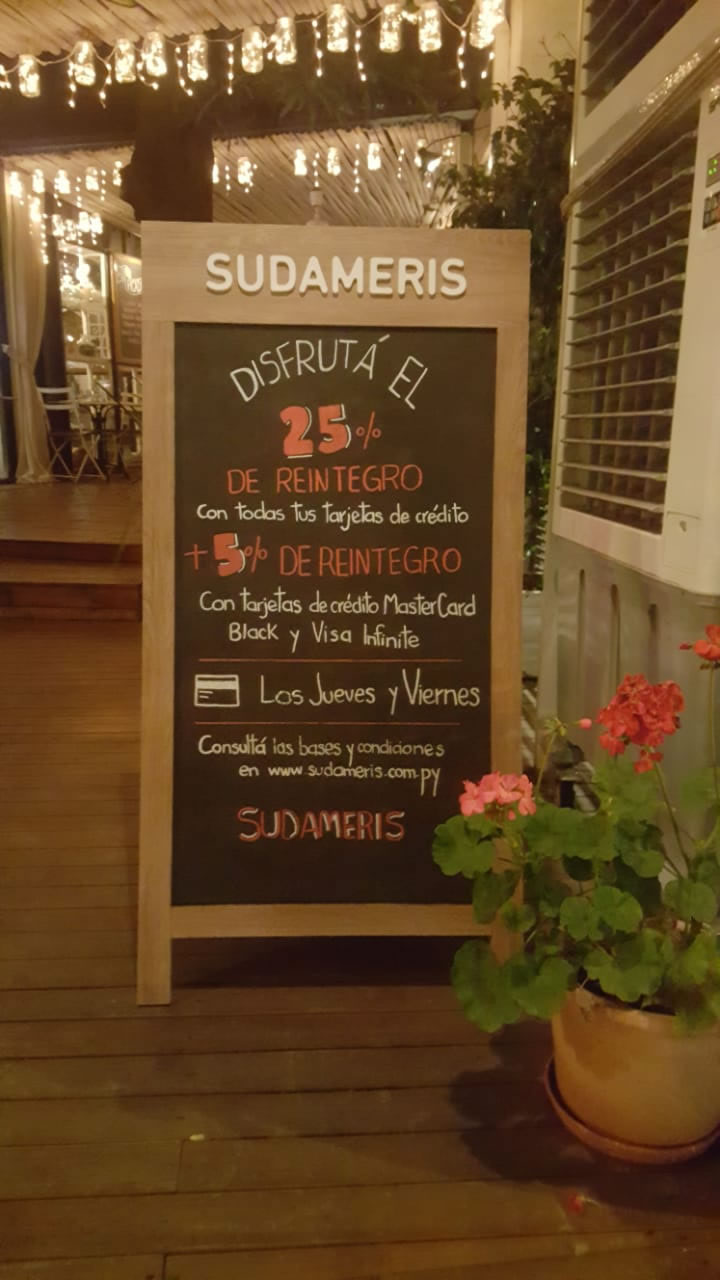 SUDAMERIS
DISFRUTÁ EL
25%
DE REINTEGRO
Con todas tus tarjetas de crédito
+5% DE REINTEGRO
Con tarjetas de crédito MasterCard
Black y Visa Infinite
Los Jueves y Viernes
Consultá las bases y condiciones
en www.sudameris.com.py
SUDAMERIS